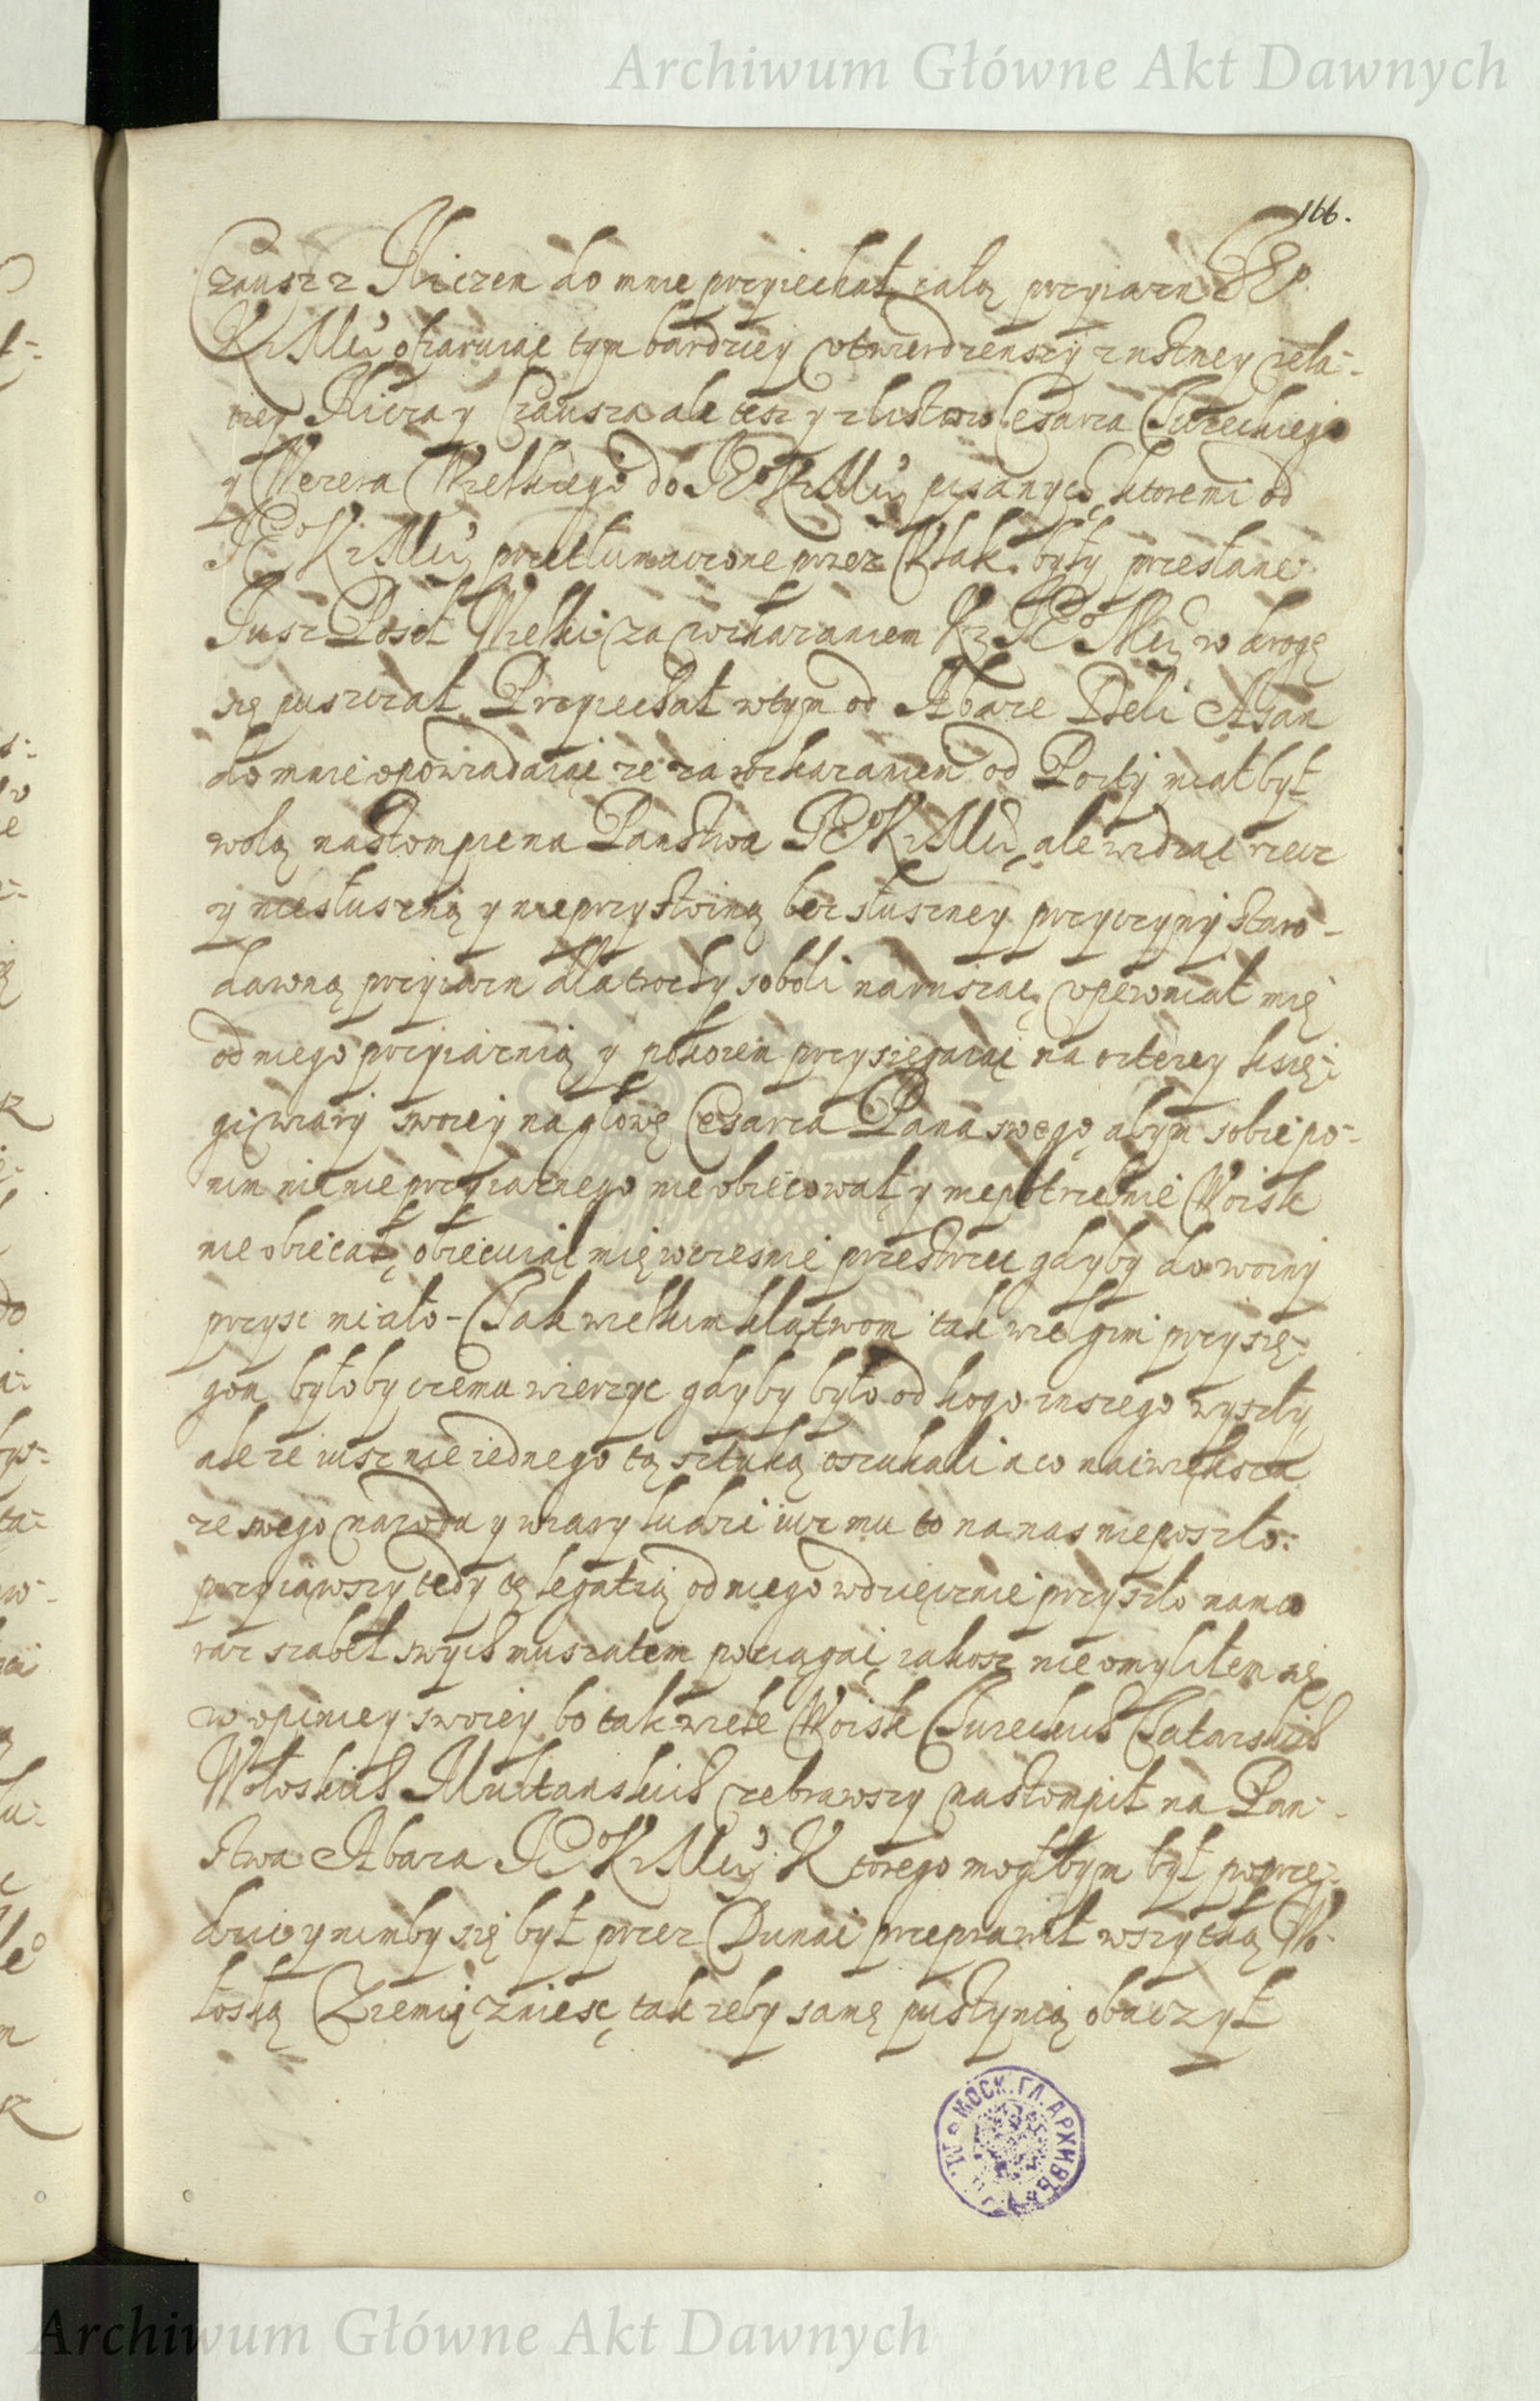 Archiwum Główne Akt Dawnych
166.
Czausz z Niczem do mnie przyiechał, całą przyiazn JE°
KrMći ofiaruiąc tym bardziey utwierdzenszy z ustney rela-
ciey Nicza y Czausza ale tesz y z listow Cesarza Tureckiego
y Wezera Wielkiego do JE° KrMći pisanych, ktoremi od
JE° KrMći przetłumaczone przez były przesłane.
Jusz Poseł Wielki za wskazaniem Kr JE° Mći w drogę
się puszczał. Przyiechał w tym od Abaze Deli Asan
do mnie opowiadaiąc ze za wskazaniem od Porty miał był
wolą nastompic na Panstwa JE° KrMći, ale widząc rzecz
y niesłuszną y nieprzystoiną bez słuszney przyczyny staro-
dawną przyiazn dla trochy soboli naruszac, upewniał mię
od niego przyiaznią y pokoiem przysięgaiąc na cztery księ-
gi wiary swoiey na głowę Cesarza Pana swego, abym sobie po
nim nic nieprzyiaznego nie obiecował, y niepotrzebnie Woisk
nie obiecał, obiecuiąc mię wczesnie przestrzec gdyby do woiny
przysc miało - Tak wielkim klątwom tak wielgim przysię-
gom byłoby czemu wierzyc gdyby było od kogo inszego wyszły,
ale ze iusz nie iednego tą sztuką oszukali a co naiwiększa
ze swego narodu y wiary ludzi iuz mu to na nas nie poszło.
przyiąwszy tedy tę legatią od niego wdzięcznie przyszło nam co
raz szabel swych musiałem pociągac, iakosz nie omyliłem się
w opiniey swoiey bo tak wiele Woisk Tureckich Tatarskich
Wołoskich Multanskich zebrawszy nastompił na Pan-
stwa Abaza JE° KrMći. Ktorego mogłbym był poprze-
dzic y nimby się był przez Dunai przeprawił wszytką Wo-
łoską Ziemię zniesc, tak zeby samę pustynią obaczył
МОСК. ГЛ. АРХИВЪ
Archiwum Główne Akt Dawnych